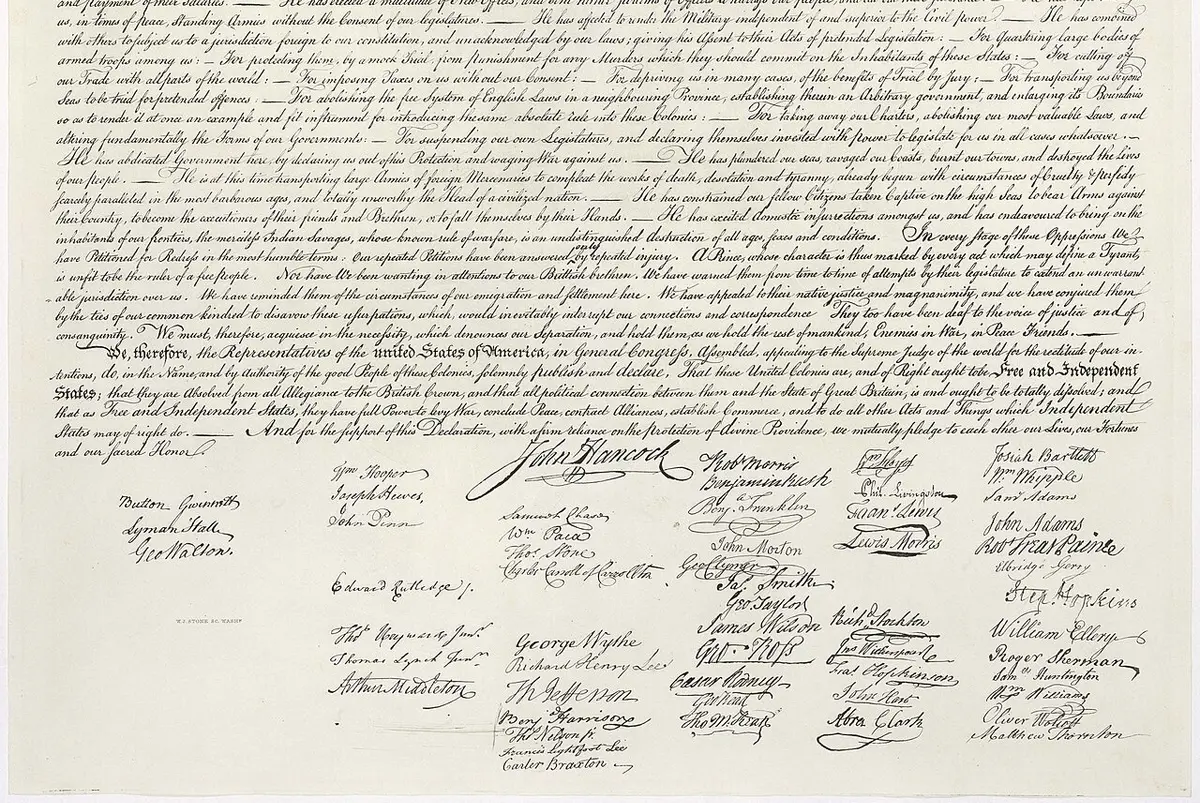 us, in times of peace, Standing Armies without the Consent of our legislatures. — He has affected to render the Military independent of and superior to the Civil power. — He has combined
with others to subject us to a jurisdiction foreign to our constitution, and unacknowledged by our laws; giving his Assent to their Acts of pretended Legislation: — For Quartering large bodies of
armed troops among us: — For protecting them, by a mock Trial, from punishment for any Murders which they should commit on the Inhabitants of these States: — For cutting off
our Trade with all parts of the world: — For imposing Taxes on us without our Consent: — For depriving us in many cases, of the benefits of Trial by Jury: — For transporting us beyond
Seas to be tried for pretended offences: — For abolishing the free System of English Laws in a neighbouring Province, establishing therein an Arbitrary government, and enlarging its Boundaries
so as to render it at once an example and fit instrument for introducing the same absolute rule into these Colonies: — For taking away our Charters, abolishing our most valuable Laws, and
altering fundamentally the Forms of our Governments: — For suspending our own Legislatures, and declaring themselves invested with power to legislate for us in all cases whatsoever. —
He has abdicated Government here, by declaring us out of his Protection and waging War against us. — He has plundered our seas, ravaged our Coasts, burnt our towns, and destroyed the Lives
of our people. — He is at this time transporting large Armies of foreign Mercenaries to compleat the works of death, desolation and tyranny, already begun with circumstances of Cruelty & perfidy
scarcely paralleled in the most barbarous ages, and totally unworthy the Head of a civilized nation. — He has constrained our fellow Citizens taken Captive on the high Seas to bear Arms against
their Country, to become the executioners of their friends and Brethren, or to fall themselves by their Hands. — He has excited domestic insurrections amongst us, and has endeavoured to bring on the
inhabitants of our frontiers, the merciless Indian Savages, whose known rule of warfare, is an undistinguished destruction of all ages, sexes and conditions. In every stage of these Oppressions We
have Petitioned for Redress in the most humble terms: Our repeated Petitions have been answered only by repeated injury. A Prince, whose character is thus marked by every act which may define a Tyrant,
is unfit to be the ruler of a free people. Nor have We been wanting in attentions to our Brittish brethren. We have warned them from time to time of attempts by their legislature to extend an unwarrant
able jurisdiction over us. We have reminded them of the circumstances of our emigration and settlement here. We have appealed to their native justice and magnanimity, and we have conjured them
by the ties of our common kindred to disavow these usurpations, which, would inevitably interrupt our connections and correspondence They too have been deaf to the voice of justice and of
consanguinity. We must, therefore, acquiesce in the necessity, which denounces our Separation, and hold them, as we hold the rest of mankind, Enemies in War, in Peace Friends. —
We, therefore, the Representatives of the united States of America, in General Congress, Assembled, appealing to the Supreme Judge of the world for the rectitude of our in-
tentions, do, in the Name, and by Authority of the good People of these Colonies, solemnly publish and declare, That these United Colonies are, and of Right ought to be Free and Independent
States; that they are Absolved from all Allegiance to the British Crown, and that all political connection between them and the State of Great Britain, is and ought to be totally dissolved; and
that as Free and Independent States, they have full Power to levy War, conclude Peace, contract Alliances, establish Commerce, and to do all other Acts and Things which Independent
States may of right do. — And for the support of this Declaration, with a firm reliance on the protection of divine Providence, we mutually pledge to each other our Lives, our Fortunes
and our sacred Honor.
Button Gwinnett
Lyman Hall
Geo Walton.
W. J. STONE SC. WASHN
Wm Hooper
Joseph Hewes,
John Penn
Edward Rutledge /.
Thos Heyward Junr.
Thomas Lynch Junr.
Arthur Middleton
John Hancock
Samuel Chase
Wm Paca
Thos. Stone
Charles Carroll of Carrollton
George Wythe
Richard Henry Lee
Th Jefferson
Benj Harrison
Thos Nelson jr.
Francis Lightfoot Lee
Carter Braxton
Robt Morris
Benjamin Rush
Benj. Franklin
John Morton
Geo Clymer
Jas. Smith
Geo. Taylor
James Wilson
Geo. Ross
Caesar Rodney
Geo Read
Tho M:Kean
Wm Floyd
Phil. Livingston
Frans. Lewis
Lewis Morris
Richd. Stockton
Jno Witherspoon
Fras. Hopkinson
John Hart
Abra Clark
Josiah Bartlett
Wm: Whipple
Saml Adams
John Adams
Robt Treat Paine
Elbridge Gerry
Step. Hopkins
William Ellery
Roger Sherman
Saml Huntington
Wm Williams
Oliver Wolcott
Matthew Thornton